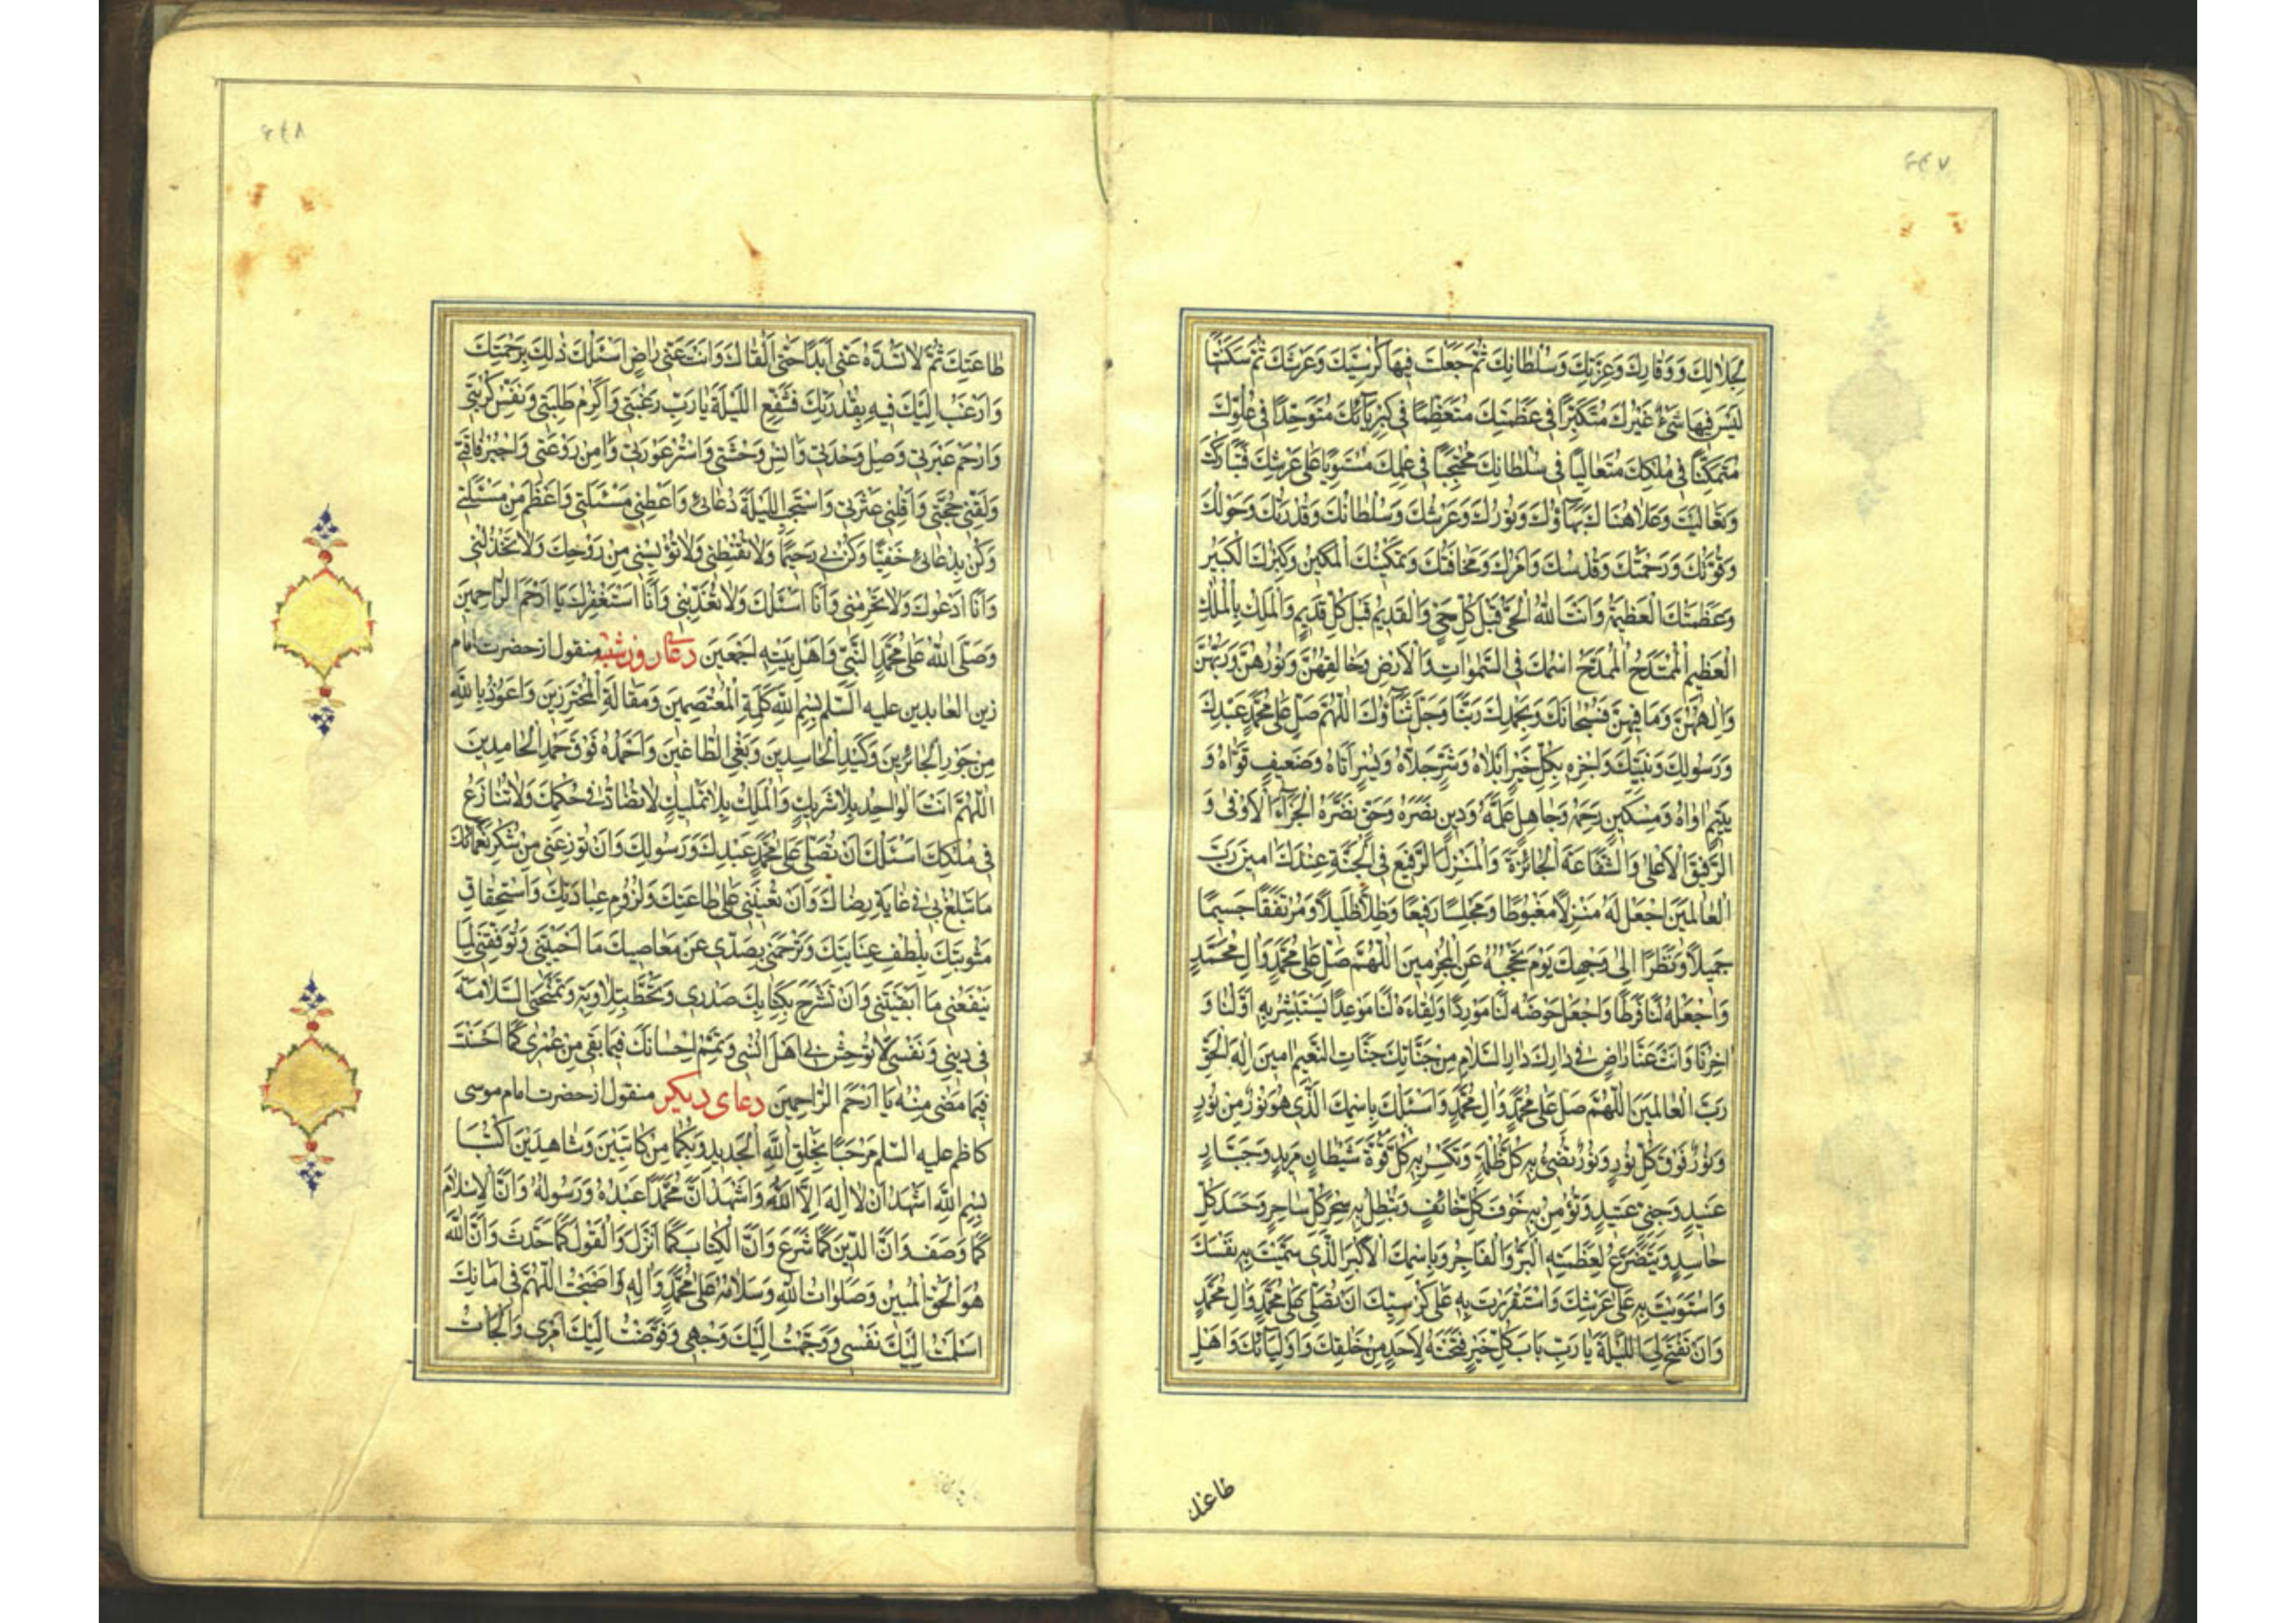 ۶۴۷
بِجَلَالِكَ وَوَقَارِكَ وَعِزَّتِكَ وَسُلْطَانِكَ ثُمَّ جَعَلْتَ فِيهَا كُرْسِيَّكَ وَعَرْشَكَ ثُمَّ سَكَنْتَهَا
لَيْسَ فِيهَا شَيْءٌ غَيْرُكَ مُتَكَبِّرًا فِي عَظَمَتِكَ مُتَعَظِّمًا فِي كِبْرِيَآئِكَ مُتَوَحِّدًا فِي عُلُوِّكَ
مُتَمَكِّنًا فِي مُلْكِكَ مُتَعَالِيًا فِي سُلْطَانِكَ مُحْتَجِبًا فِي عِلْمِكَ مُسْتَوِيًا عَلَى عَرْشِكَ فَتَبَارَكْتَ
وَتَعَالَيْتَ وَعَلَا هُنَاكَ بَهَآؤُكَ وَنُورُكَ وَعَرْشُكَ وَسُلْطَانُكَ وَقُدْرَتُكَ وَحَوْلُكَ
وَقُوَّتُكَ وَرَحْمَتُكَ وَقُدْسُكَ وَأَمْرُكَ وَمَخَافَتُكَ وَتَمَكُّنُكَ الْمَكِينُ وَكِبْرُكَ الْكَبِيرُ
وَعَظَمَتُكَ الْعَظِيمَةُ وَأَنْتَ اللّٰهُ الْحَيُّ قَبْلَ كُلِّ حَيٍّ وَالْقَدِيمُ قَبْلَ كُلِّ قَدِيمٍ وَالْمَلِكُ بِالْمُلْكِ
الْعَظِيمِ الْمُمْتَدَحُ الْمُمَدَّحُ اسْمُكَ فِي السَّمٰوَاتِ وَالْأَرْضِ وَخَالِقُهُنَّ وَنُورُهُنَّ وَرَبُّهُنَّ
وَإِلٰهُهُنَّ وَمَا فِيهِنَّ فَسُبْحَانَكَ وَبِحَمْدِكَ رَبَّنَا وَجَلَّ ثَنَآؤُكَ اللّٰهُمَّ صَلِّ عَلَى مُحَمَّدٍ عَبْدِكَ
وَرَسُولِكَ وَنَبِيِّكَ وَاجْزِهِ بِكُلِّ خَيْرٍ أَبْلَاهُ وَشَرٍّ جَلَاهُ وَيُسْرٍ أَتَاهُ وَضَعِيفٍ قَوَّاهُ وَ
يَتِيمٍ اٰوَاهُ وَمِسْكِينٍ رَحِمَهُ وَجَاهِلٍ عَلَّمَهُ وَدِينٍ نَصَرَهُ وَحَقٍّ نَصَرَهُ الْجَزَآءَ الْأَوْفَى وَ
الرَّفِيقَ الْأَعْلَى وَالشَّفَاعَةَ الْجَائِزَةَ وَالْمَنْزِلَ الرَّفِيعَ فِي الْجَنَّةِ عِنْدَكَ اٰمِينَ رَبَّ
الْعَالَمِينَ اجْعَلْ لَهُ مَنْزِلًا مَغْبُوطًا وَمَجْلِسًا رَفِيعًا وَظِلًّا ظَلِيلًا وَمُرْتَفَقًا جَسِيمًا
جَمِيلًا وَنَظَرًا إِلَى وَجْهِكَ يَوْمَ تَحْجُبُهُ عَنِ الْمُجْرِمِينَ اللّٰهُمَّ صَلِّ عَلَى مُحَمَّدٍ وَاٰلِ مُحَمَّدٍ
وَاجْعَلْهُ لَنَا فَرَطًا وَاجْعَلْ حَوْضَهُ لَنَا مَوْرِدًا وَلِقَاءَهُ لَنَا مَوْعِدًا يَسْتَبْشِرُ بِهِ أَوَّلُنَا وَ
اٰخِرُنَا وَأَنْتَ عَنَّا رَاضٍ فِي دَارِكَ دَارِ السَّلَامِ مِنْ جَنَّاتِكَ جَنَّاتِ النَّعِيمِ اٰمِينَ إِلٰهَ الْحَقِّ
رَبَّ الْعَالَمِينَ اللّٰهُمَّ صَلِّ عَلَى مُحَمَّدٍ وَاٰلِ مُحَمَّدٍ وَأَسْئَلُكَ بِاسْمِكَ الَّذِي هُوَ نُورٌ مِنْ نُورٍ
وَنُورٌ فَوْقَ كُلِّ نُورٍ وَنُورٌ تُضِيءُ بِهِ كُلَّ ظُلْمَةٍ وَتَكْسِرُ بِهِ كُلَّ قُوَّةِ شَيْطَانٍ مَرِيدٍ وَجَبَّارٍ
عَنِيدٍ وَجِنِّيٍّ عَتِيدٍ وَتُؤْمِنُ بِهِ خَوْفَ كُلِّ خَائِفٍ وَتُبْطِلُ بِهِ سِحْرَ كُلِّ سَاحِرٍ وَحَسَدَ كُلِّ
حَاسِدٍ وَيَتَضَرَّعُ لِعَظَمَتِهِ الْبَرُّ وَالْفَاجِرُ وَبِاسْمِكَ الْأَكْبَرِ الَّذِي سَمَّيْتَ بِهِ نَفْسَكَ
وَاسْتَوَيْتَ بِهِ عَلَى عَرْشِكَ وَاسْتَقْرَرْتَ بِهِ عَلَى كُرْسِيِّكَ أَنْ تُصَلِّيَ عَلَى مُحَمَّدٍ وَاٰلِ مُحَمَّدٍ
وَأَنْ تَفْتَحَ لِيَ اللَّيْلَةَ يَا رَبِّ بَابَ كُلِّ خَيْرٍ فَتَحْتَهُ لِأَحَدٍ مِنْ خَلْقِكَ وَأَوْلِيَآئِكَ وَأَهْلِ
۶۴۸
طَاعَتِكَ ثُمَّ لَا تَسُدَّهُ عَنِّي أَبَدًا حَتَّى أَلْقَاكَ وَأَنْتَ عَنِّي رَاضٍ أَسْئَلُكَ ذٰلِكَ بِرَحْمَتِكَ
وَأَرْغَبُ إِلَيْكَ فِيهِ بِقُدْرَتِكَ فَشَفِّعِ اللَّيْلَةَ يَا رَبِّ رَغْبَتِي وَأَكْرِمْ طَلِبَتِي وَنَفِّسْ كُرْبَتِي
وَارْحَمْ عَبْرَتِي وَصِلْ وَحْدَتِي وَاٰنِسْ وَحْشَتِي وَاسْتُرْ عَوْرَتِي وَاٰمِنْ رَوْعَتِي وَاجْبُرْ فَاقَتِي
وَلَقِّنِّي حُجَّتِي وَأَقِلْنِي عَثْرَتِي وَاسْتَجِبِ اللَّيْلَةَ دُعَائِي وَأَعْطِنِي مَسْئَلَتِي وَأَعْظَمَ مِنْ مَسْئَلَتِي
وَكُنْ بِدُعَائِي حَفِيًّا وَكُنْ بِي رَحِيمًا وَلَا تُقَنِّطْنِي وَلَا تُؤْيِسْنِي مِنْ رَوْحِكَ وَلَا تَخْذُلْنِي
وَأَنَا أَدْعُوكَ وَلَا تَحْرِمْنِي وَأَنَا أَسْئَلُكَ وَلَا تُعَذِّبْنِي وَأَنَا أَسْتَغْفِرُكَ يَا أَرْحَمَ الرَّاحِمِينَ
وَصَلَّى اللّٰهُ عَلَى مُحَمَّدٍ النَّبِيِّ وَأَهْلِ بَيْتِهِ أَجْمَعِينَ دعای روز شنبه منقول از حضرت امام
زین العابدین علیه السّلم بِسْمِ اللّٰهِ كَلِمَةِ الْمُعْتَصِمِينَ وَمَقَالَةِ الْمُتَحَرِّزِينَ وَأَعُوذُ بِاللّٰهِ
مِنْ جَوْرِ الْجَائِرِينَ وَكَيْدِ الْحَاسِدِينَ وَبَغْيِ الطَّاغِينَ وَأَحْمَدُهُ فَوْقَ حَمْدِ الْحَامِدِينَ
اللّٰهُمَّ أَنْتَ الْوَاحِدُ بِلَا شَرِيكٍ وَالْمَلِكُ بِلَا تَمْلِيكٍ لَا تُضَادُّ فِي حُكْمِكَ وَلَا تُنَازَعُ
فِي مُلْكِكَ أَسْئَلُكَ أَنْ تُصَلِّيَ عَلَى مُحَمَّدٍ عَبْدِكَ وَرَسُولِكَ وَأَنْ تُوزِعَنِي مِنْ شُكْرِ نَعْمَائِكَ
مَا تَبْلُغُ بِي فِي غَايَةَ رِضَاكَ وَأَنْ تُعِينَنِي عَلَى طَاعَتِكَ وَلُزُومِ عِبَادَتِكَ وَاسْتِحْقَاقِ
مَثُوبَتِكَ بِلُطْفِ عِنَايَتِكَ وَتَرْحَمَنِي بِصَدِّي عَنْ مَعَاصِيكَ مَا أَحْيَيْتَنِي وَتُوَفِّقَنِي لِمَا
يَنْفَعُنِي مَا أَبْقَيْتَنِي وَأَنْ تَشْرَحَ بِكِتَابِكَ صَدْرِي وَتَحُطَّ بِتِلَاوَتِهِ وَتَمْنَحَنِي السَّلَامَةَ
فِي دِينِي وَنَفْسِي وَلَا تُوحِشْ بِي أَهْلَ أُنْسِي وَتُتِمَّ إِحْسَانَكَ فِيمَا بَقِيَ مِنْ عُمْرِي كَمَا أَحْسَنْتَ
فِيمَا مَضَى مِنْهُ يَا أَرْحَمَ الرَّاحِمِينَ دعای دیگر منقول از حضرت امام موسی
کاظم علیه السّلم مَرْحَبًا بِخَلْقِ اللّٰهِ الْجَدِيدِ وَبِكُمَا مِنْ كَاتِبَيْنِ وَشَاهِدَيْنِ اكْتُبَا
بِسْمِ اللّٰهِ أَشْهَدُ أَنْ لَا إِلٰهَ إِلَّا اللّٰهُ وَأَشْهَدُ أَنَّ مُحَمَّدًا عَبْدُهُ وَرَسُولُهُ وَأَنَّ الْإِسْلَامَ
كَمَا وَصَفَ وَأَنَّ الدِّينَ كَمَا شَرَعَ وَأَنَّ الْكِتَابَ كَمَا أَنْزَلَ وَالْقَوْلَ كَمَا حَدَّثَ وَأَنَّ اللّٰهَ
هُوَ الْحَقُّ الْمُبِينُ وَصَلَوَاتُ اللّٰهِ وَسَلَامُهُ عَلَى مُحَمَّدٍ وَاٰلِهِ وَأَصْبَحْتُ اللّٰهُمَّ فِي أَمَانِكَ
أَسْلَمْتُ إِلَيْكَ نَفْسِي وَوَجَّهْتُ إِلَيْكَ وَجْهِي وَفَوَّضْتُ إِلَيْكَ أَمْرِي وَأَلْجَأْتُ